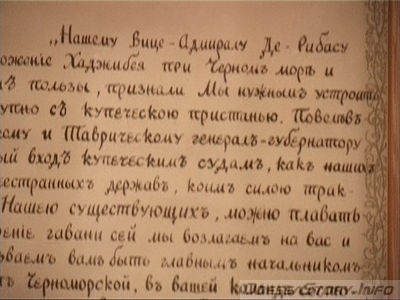 „Нашему Вице-Адмиралу Де-Рибасу
ложенiе Хаджибея при Черномъ морѣ и
пользы, признали Мы нужнымъ устроить
купно съ купеческою пристанью. Повелѣв-
кому и Таврическому генералъ-губернатору
ый входъ купеческимъ судамъ, какъ нашихъ
странныхъ державъ, коимъ силою трак-
Нашею существующихъ, можно плавать
енiе гавани сей мы возлагаемъ на вас и
ваемъ вамъ быть главнымъ начальникомъ
Черноморской, въ вашей